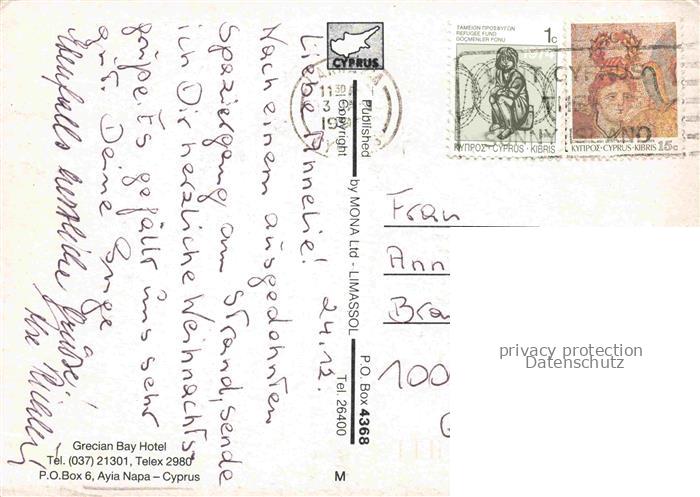 CYPRUS
Liebe Annelie! 24.12.
Nach einem ausgedehnten
Spaziergang am Strand, sende
ich Dir herzliche Weihnachts-
grüße. Es gefällt uns sehr
gut. Deine Inge
Ebenfalls herzliche Grüsse!
Ihr
Published by MONA Ltd - LIMASSOL P.O. Box 4368
Copyright Tel. 26400
M
ΤΑΜΕΙΟΝ ΠΡΟΣΦΥΓΩΝ
REFUGEE FUND
GÖÇMENLER FONU
1c
ΚΥΠΡΟΣ·CYPRUS·KIBRIS
ΚΥΠΡΟΣ·CYPRUS·KIBRIS 15c
11 30
CYPRUS
THE
ISLAND
Frau
Ann
Bra
100
privacy protection
Datenschutz
Grecian Bay Hotel
Tel. (037) 21301, Telex 2980
P.O.Box 6, Ayia Napa – Cyprus